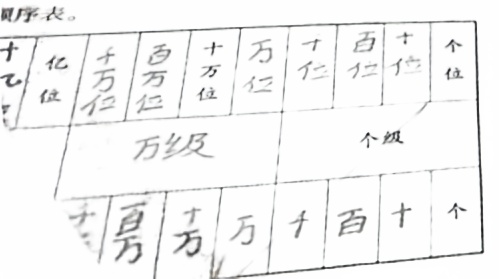 顺序表。
亿位 千万位 百万位 十万位 万位 千位 百位 十位 个位
万级 个级
千 百万 十万 万 千 百 十 个